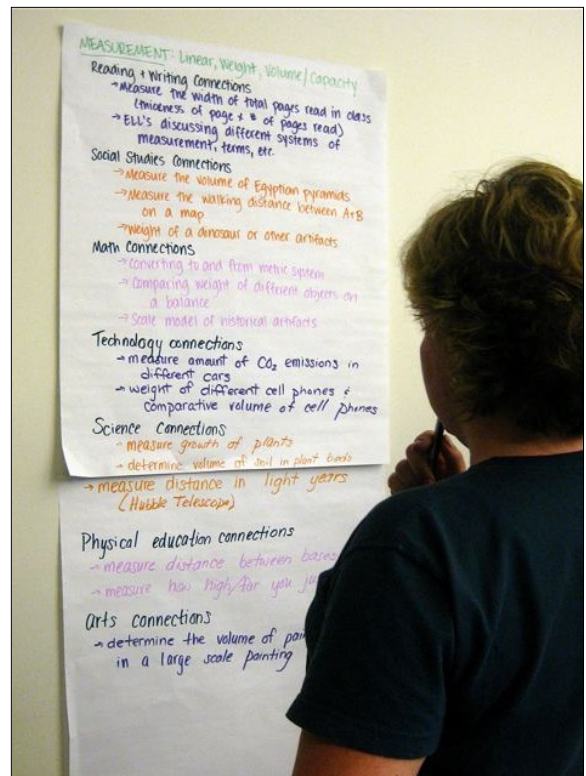 MEASUREMENT: Linear, Weight, Volume/Capacity
Reading + Writing Connections
→Measure the width of total pages read in class
(thickness of page x # of pages read)
→ELL's discussing different systems of
measurement, terms, etc.
Social Studies Connections
→Measure the volume of Egyptian pyramids
→Measure the walking distance between A+B
on a map
→Weight of a dinosaur or other artifacts
Math Connections
→Converting to and from metric system
→Comparing weight of different objects on
a balance
→Scale model of historical artifacts
Technology connections
→measure amount of CO₂ emissions in
different cars
→weight of different cell phones &
comparative volume of cell phones
Science connections
→measure growth of plants
→determine volume of soil in plant beds
→measure distance in light years
(Hubble Telescope)
Physical education connections
→measure distance between bases
→measure how high/far you
arts connections
→determine the volume of
in a large scale painting